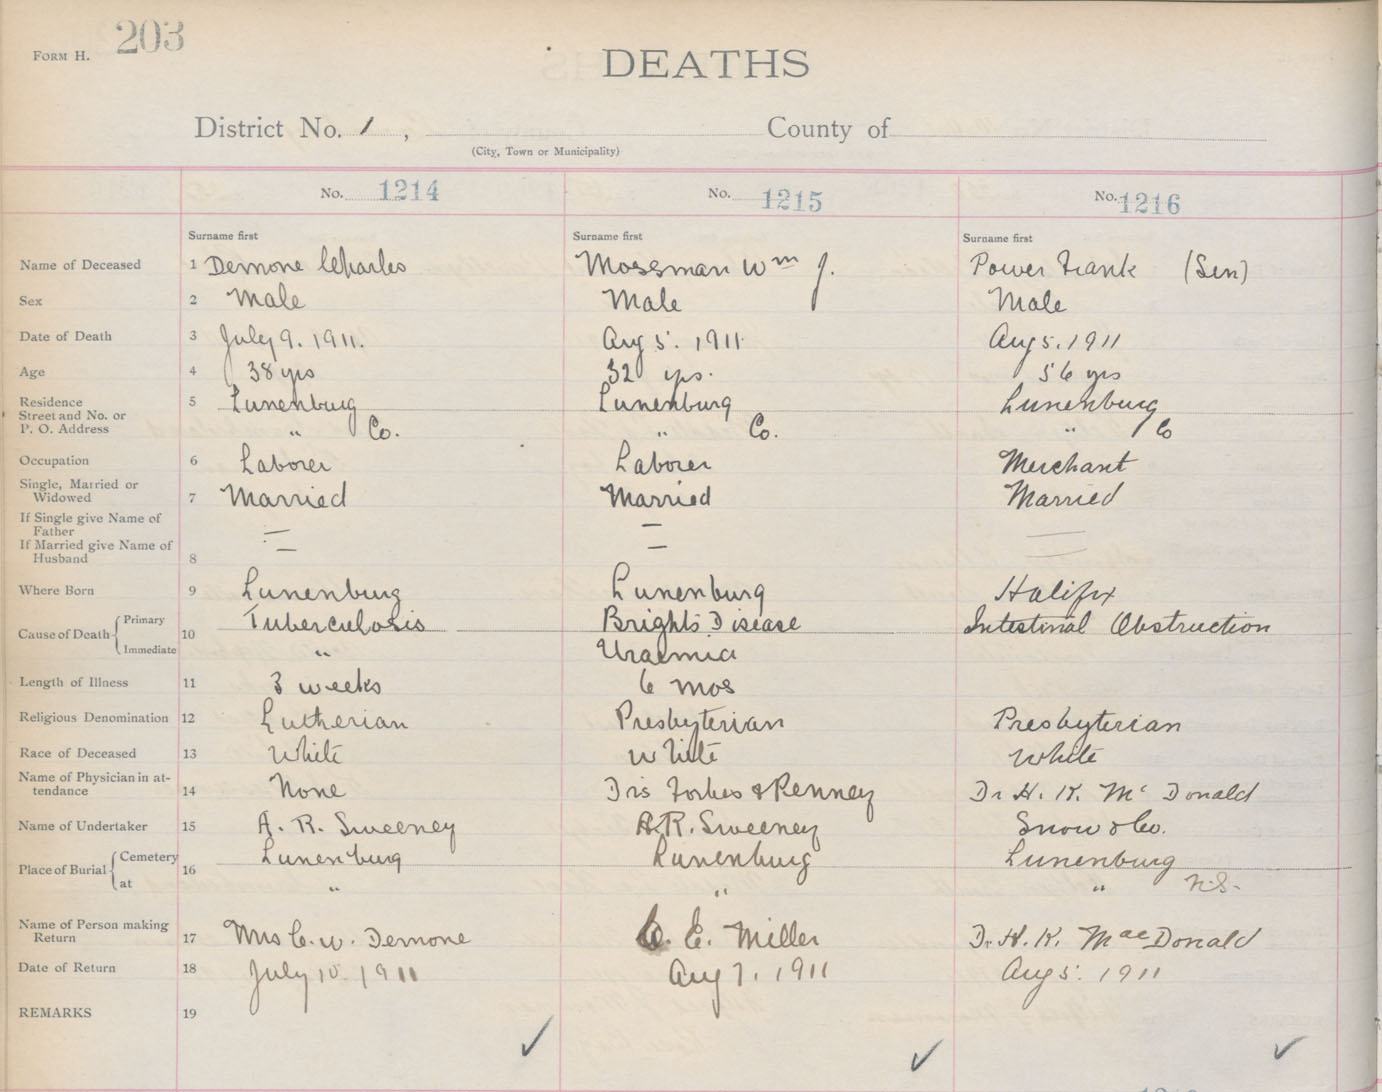 FORM H. 203
DEATHS
District No. 1, County of
(City, Town or Municipality)
No. 1214 No. 1215 No. 1216
Surname first Surname first Surname first
Name of Deceased 1 Demone Charles Mossman Wm J. Power Frank (Sen)
Sex 2 Male Male Male
Date of Death 3 July 9. 1911. Aug 5. 1911 Aug 5. 1911
Age 4 38 yrs 32 yrs. 56 yrs
Residence 5 Lunenburg Lunenburg Lunenburg
Street and No. or
P. O. Address " Co. " Co. " Co
Occupation 6 Laborer Laborer Merchant
Single, Married or
Widowed 7 Married Married Married
If Single give Name of
Father — — —
If Married give Name of
Husband 8 — — —
Where Born 9 Lunenburg Lunenburg Halifx
Cause of Death { Primary 10 Tuberculosis Bright's Disease Intestinal Obstruction
Immediate " Uraemia
Length of Illness 11 3 weeks 6 mos
Religious Denomination 12 Lutherian Presbyterian Presbyterian
Race of Deceased 13 White White White
Name of Physician in at-
tendance 14 None Drs Forbes & Penney Dr H. K. Mc Donald
Name of Undertaker 15 A. R. Sweeney A. R. Sweeney Snow & Co.
Place of Burial { Cemetery 16 Lunenburg Lunenburg Lunenburg
at " " " N.S.
Name of Person making
Return 17 Mrs C. W. Demone C. E. Miller Dr. H. K. MacDonald
Date of Return 18 July 10. 1911 Aug 7. 1911 Aug 5. 1911
REMARKS 19